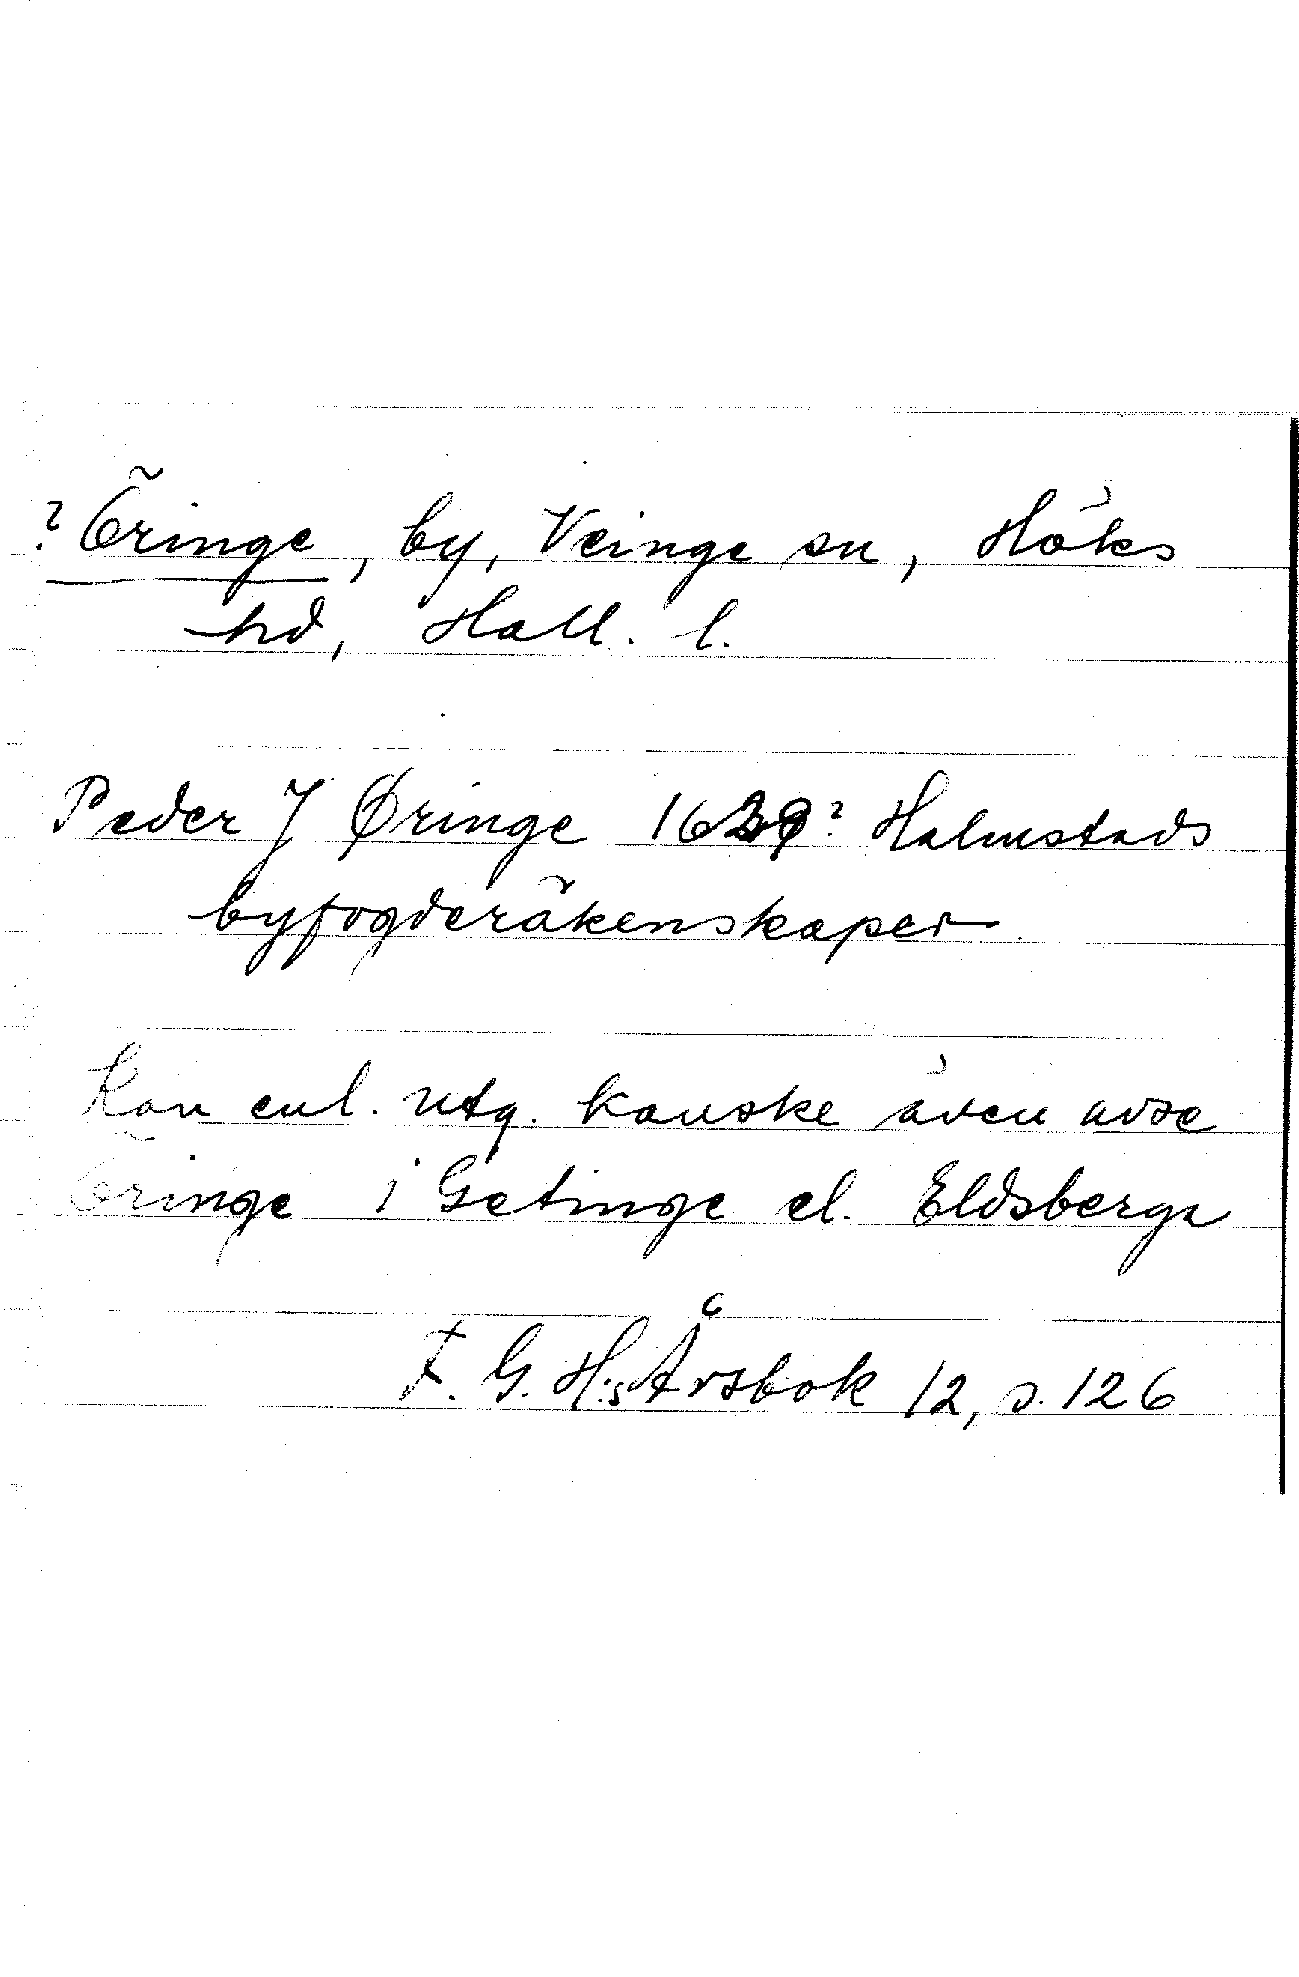 ? Öringe, by, Veinge sn, Höks
hd, Hall. l.
Peder J Øringe 1639? Halmstads
byfogderäkenskaper
Kan enl. utg. kanske även avse
Öringe i Getinge el. Eldsberga
F. G. H:s Årsbok 12, s. 126